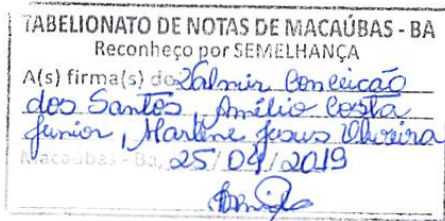 TABELIONATO DE NOTAS DE MACAÚBAS - BA
Reconheço por SEMELHANÇA
A(s) firma(s) do Valmir Conceicão
dos Santos, Amélio Costa
Junior, Marlene Jesus Oliveira
Macaúbas - Ba, 25/04/2019